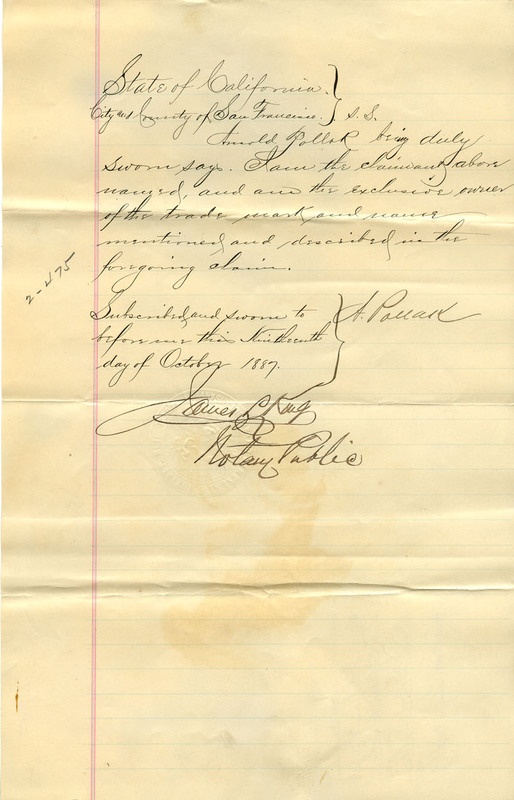 State of California.
City and County of San Francisco. } S.S.
Arnold Pollak being duly
sworn says. I am the claimant above
named, and am the exclusive owner
of the trade mark and name
mentioned and described in the
foregoing claim.
2-475
Subscribed and sworn to
before me this Nineteenth
day of October 1887.
A. Pollak
James L. King
Notary Public